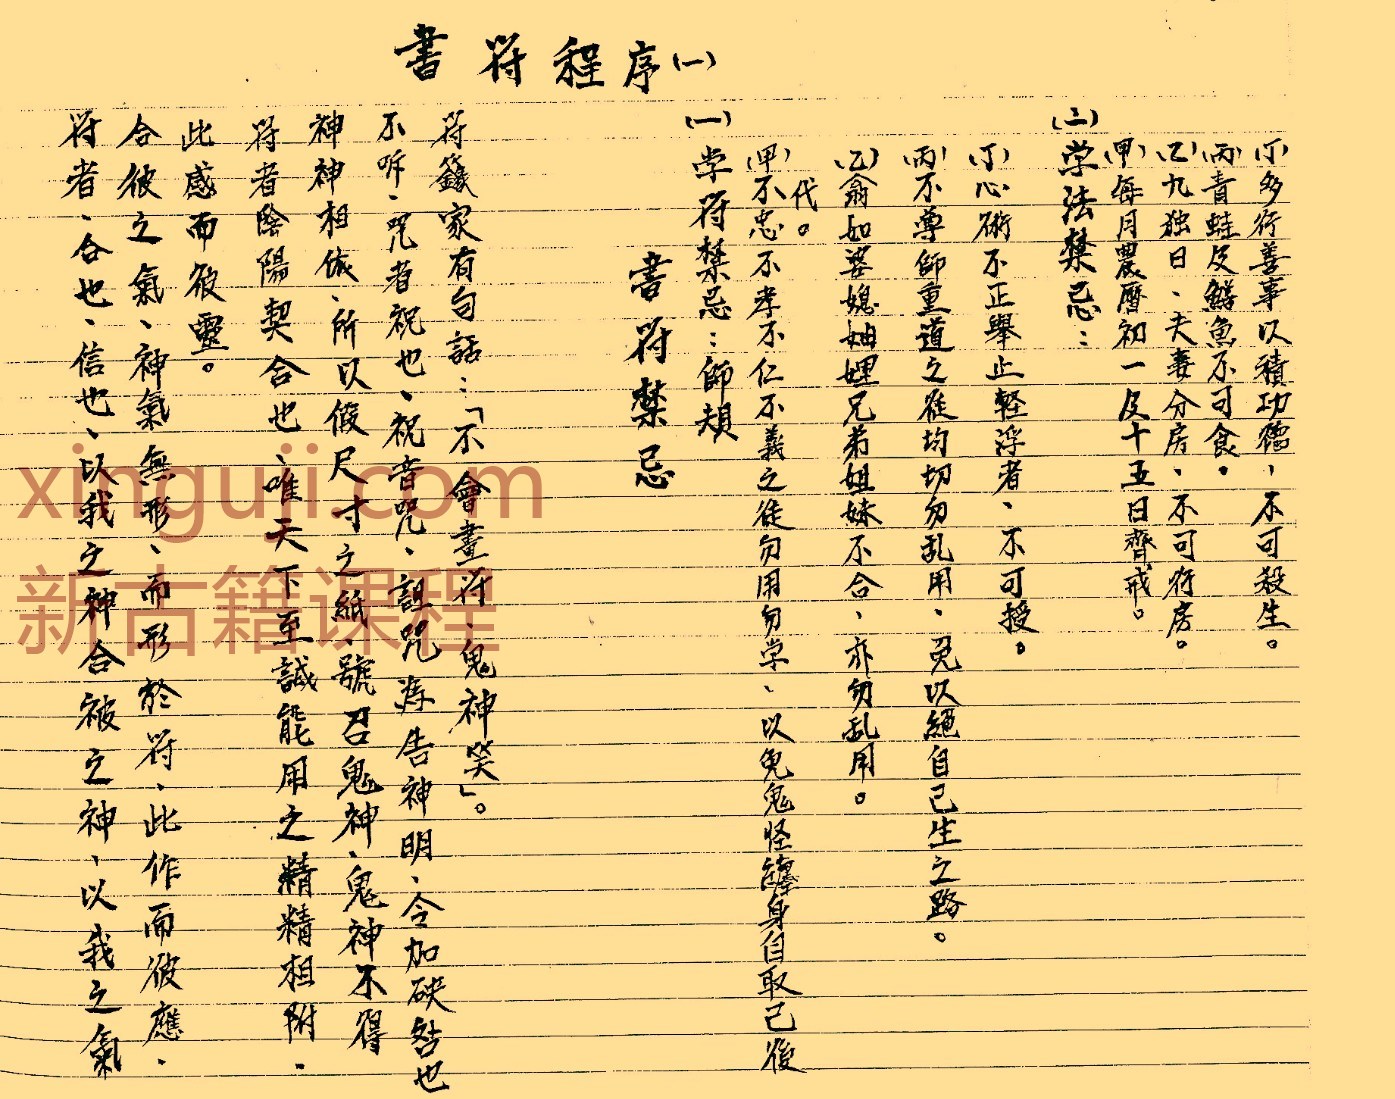 書符程序(一)
符者、合也、信也、以我之神合被之神、以我之氣
合彼之氣、神氣無形、而形於符、此作而彼應、
此感而彼靈。
符者陰陽契合也、唯天下至誠能用之精精相附、
神神相依、所以假尺寸之紙、號召鬼神、鬼神不得
不听、咒者祝也、祝者咒、詛咒為告神明、令加殃咎也
符籙家有句話:「不會畫符、鬼神笑」。
書符禁忌
(一)学符禁忌:師頰
(甲)不忠不孝不仁不義之徒勿用勿学、以免鬼怪纏身自取己後
代。
(乙)翁如婆媳妯娌兄弟姐妹不合、亦勿乱用。
(丙)不尊師重道之徒均切勿乱用、免以絕自己生之路。
(丁)心術不正舉止輕浮者、不可授。
(二)学法禁忌:
(甲)每月農曆初一及十五日齊戒。
(乙)九独日、夫妻分房、不可行房。
(丙)青蛙及鱔魚不可食。
(丁)多行善事以積功德,不可殺生。
xinguji.com
新古籍课程